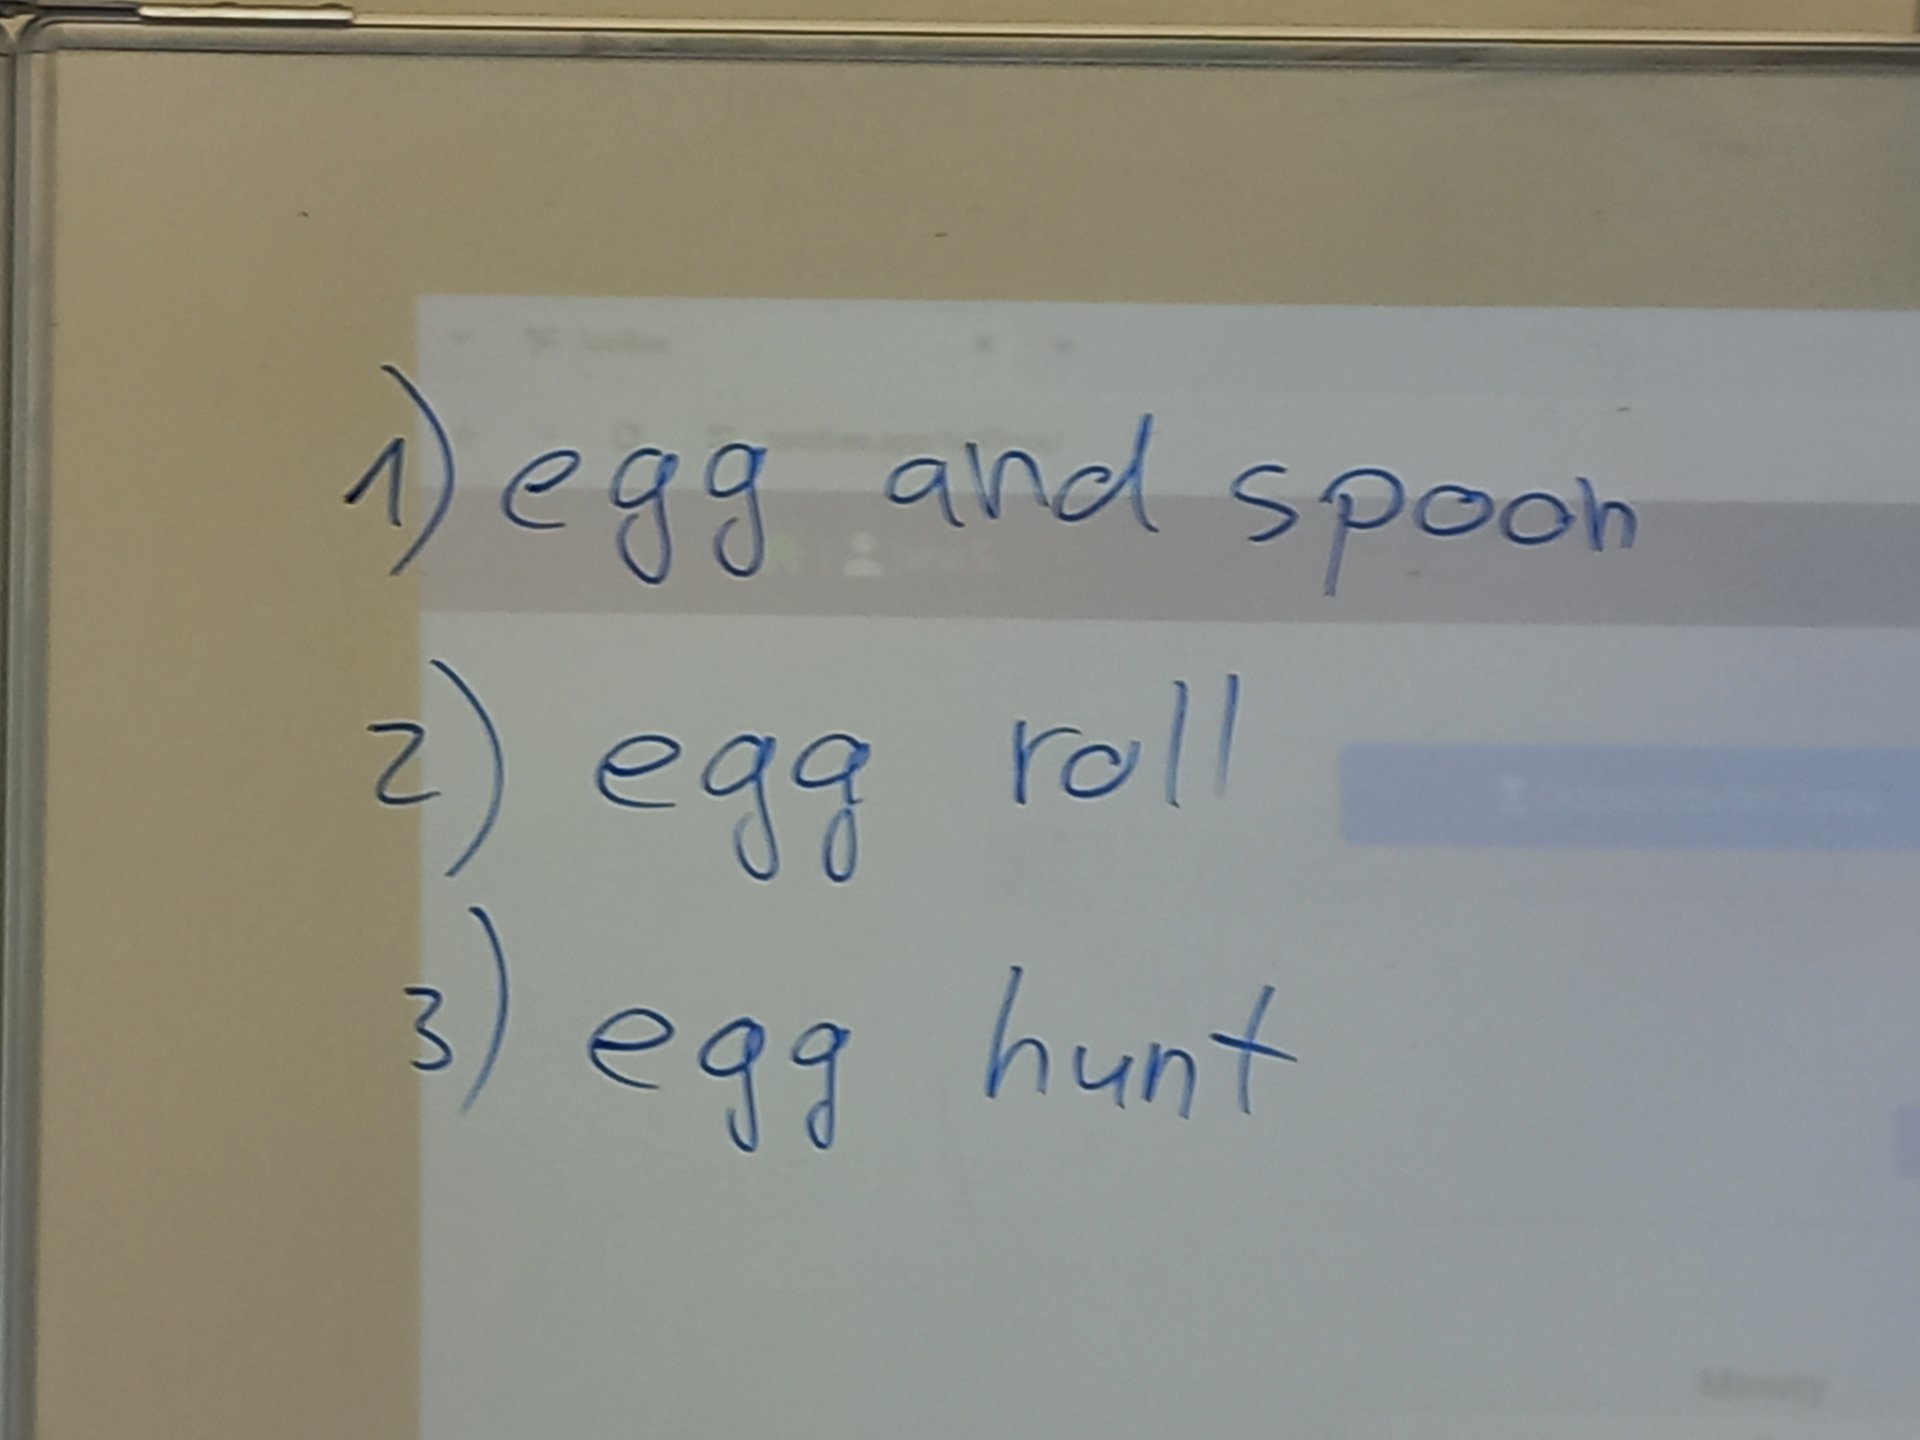 1) egg and spoon
2) egg roll
3) egg hunt
Minuty